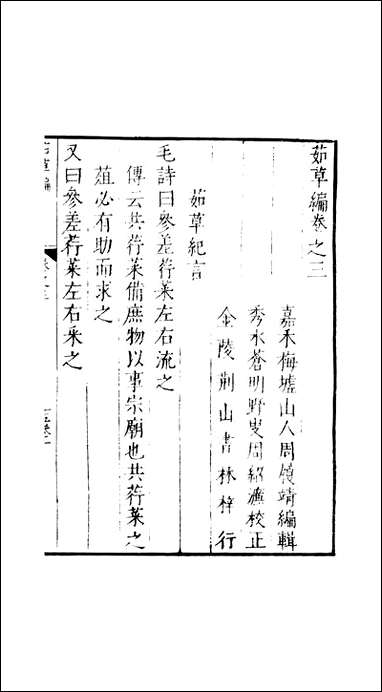 茹草編卷之三
嘉禾梅墟山人周履靖編輯
秀水蒼明野叟周紹濂校正
金陵荆山書林梓行
茹草紀言
毛詩曰參差荇菜左右流之
傳云共荇菜備庶物以事宗廟也共荇菜之
菹必有助而求之
又曰參差荇菜左右采之